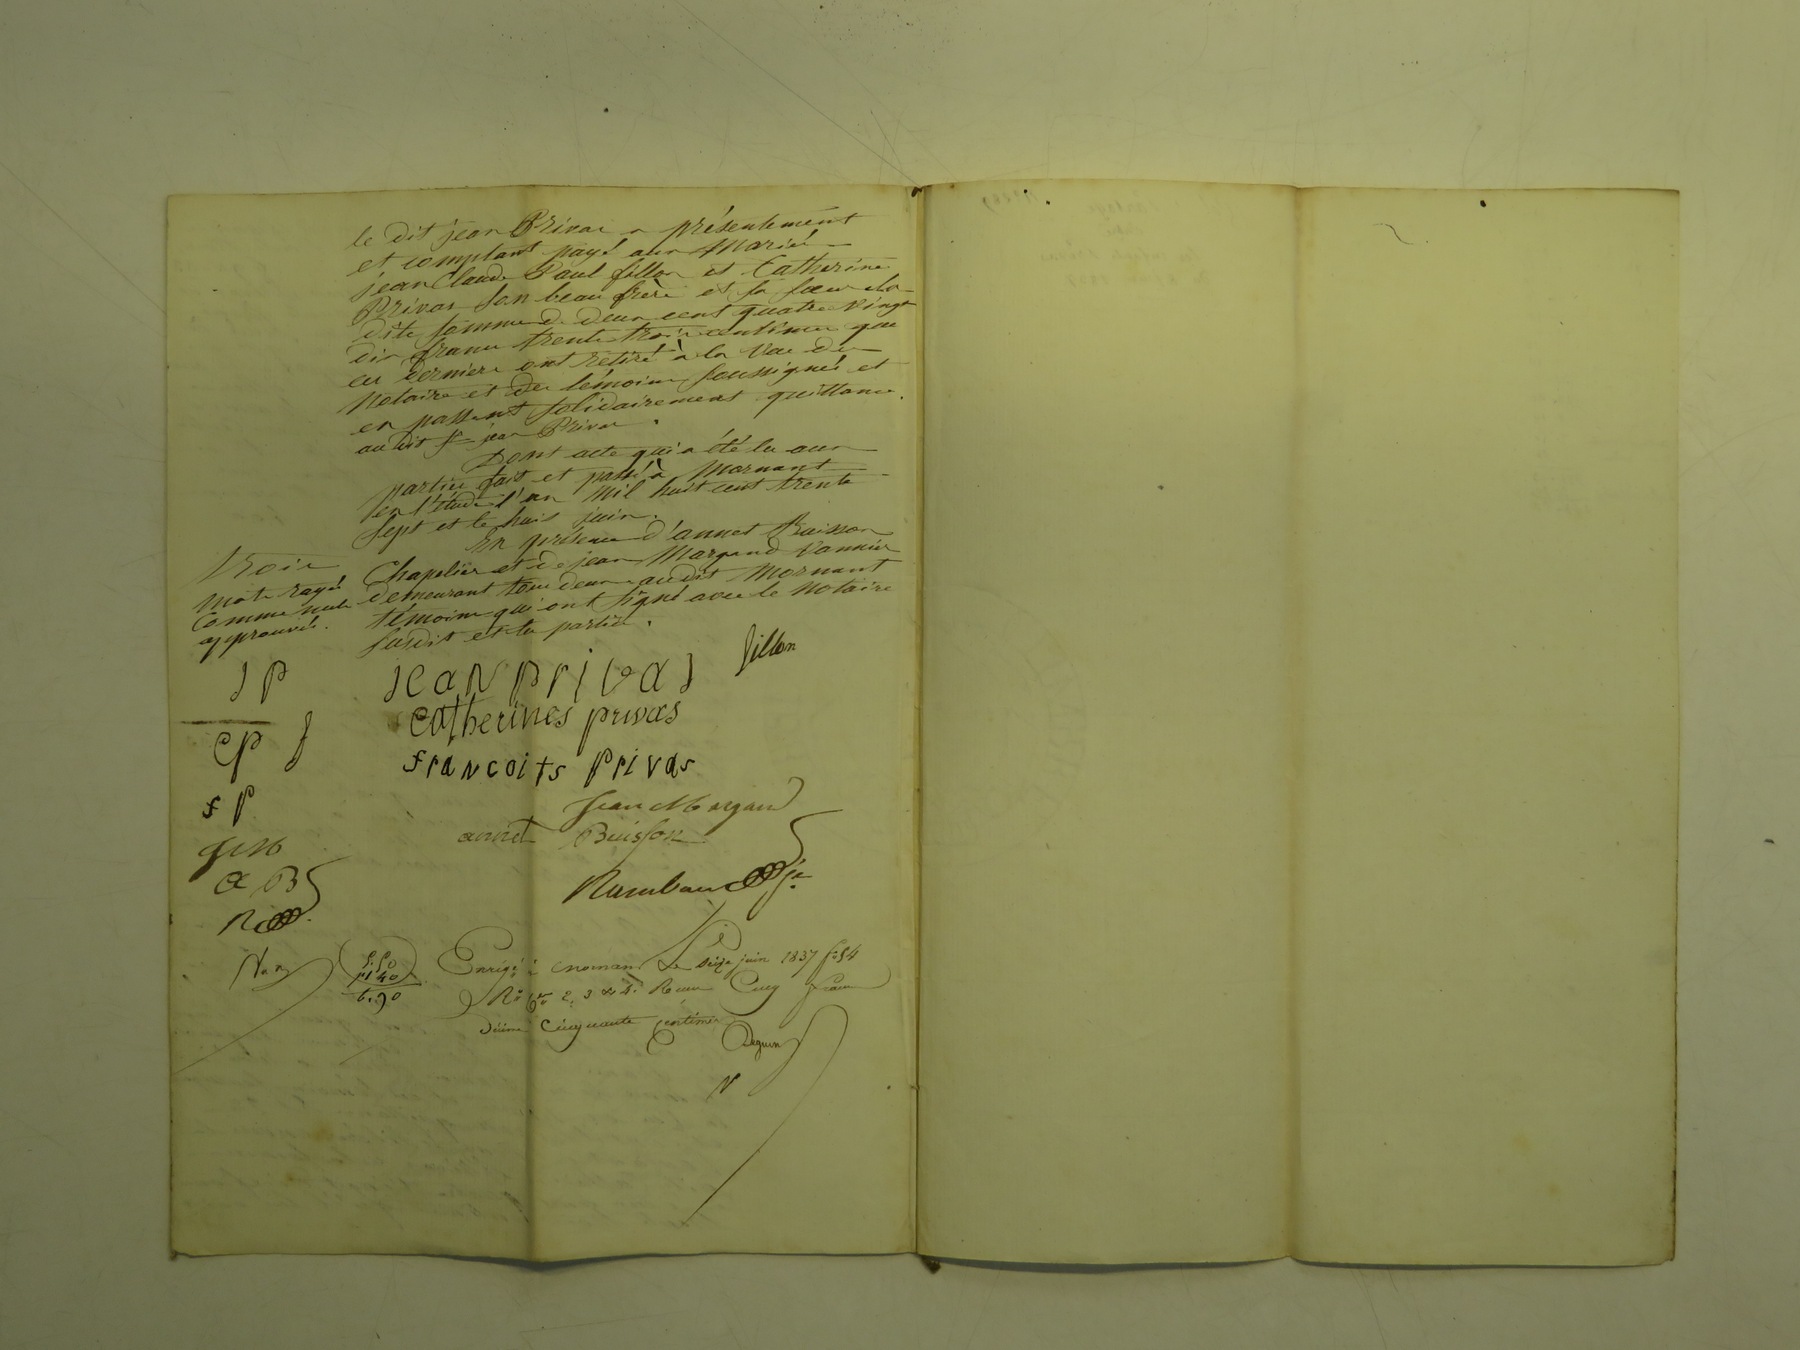 le dit jean Privas a présentement
et comptant payé aux Mariés
jean Claude Paul fillon et Catherine
Privas son beau frère et sa soeur la
dite somme de deux cent quatre vingt
dix francs trente trois centimes que
ces derniers ont retiré à la Vue du
Notaire et des témoins soussignés et
en passent solidairement quittance
au dit Sr jean Privas.
Dont acte qui a été lu aux
parties fait et passé à Mornant
en l'étude l'an Mil huit cent trente
Sept et le huit juin.
En présence d'annet Buisson
Chapelier et de jean Margand Vannier
demeurant tous deux audit Mornant
témoins qui ont signé avec le Notaire
susdit et les parties.
Trois
mots rayés
Comme nuls
approuvés.
J P
jean privas
fillon
C P f
catherines privas
f P
francoits privas
J M
Jean Margand
a B
annet Buisson
R
Rambaud
Enrégé à mornant Le Seize juin 1837 fo 84
Ro 2, 3 & 4. Reçu Cinq francs
Décime Cinquante Centimes
5.50
1 40
6.90
N